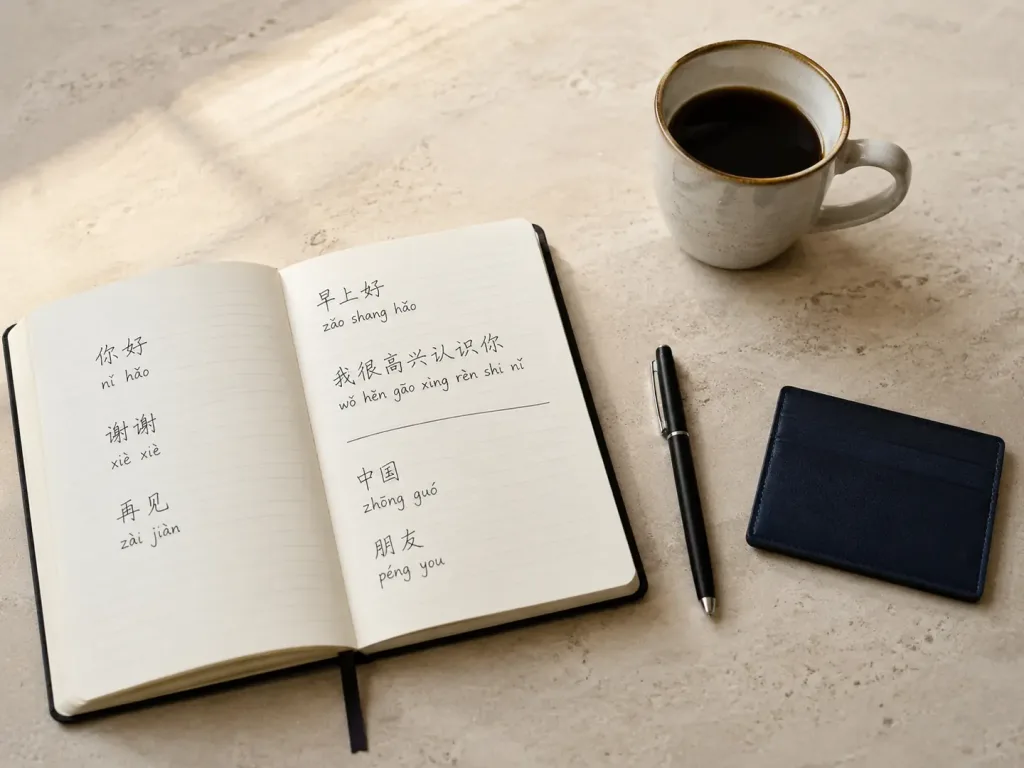 你好
nǐ hǎo
谢谢
xiè xiè
再见
zài jiàn
早上好
zǎo shang hǎo
我很高兴认识你
wǒ hěn gāo xìng rèn shi nǐ
中国
zhōng guó
朋友
péng you